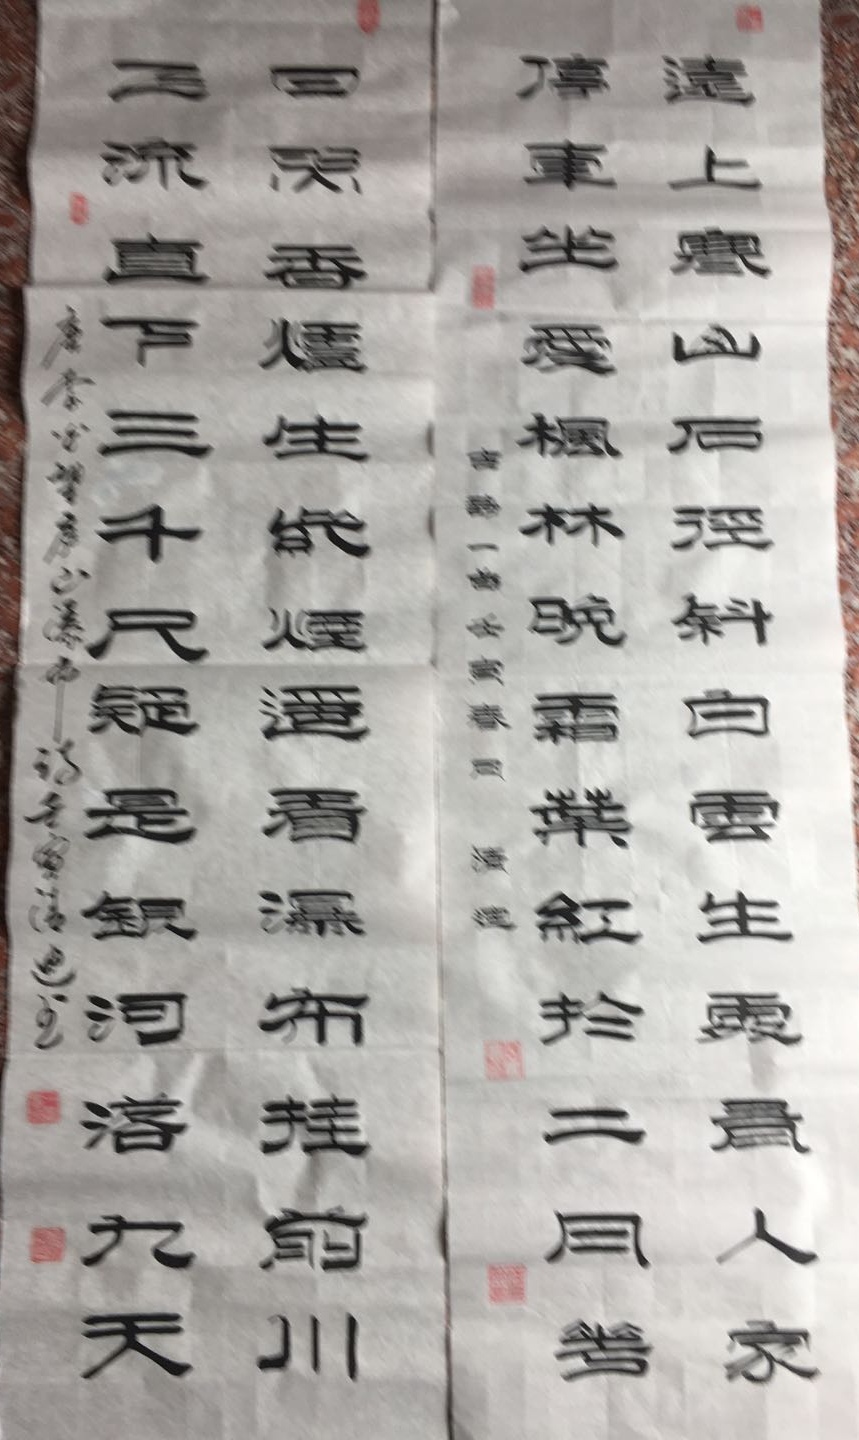 遠上寒山石徑斜白雲生處有人家
停車坐愛楓林晚霜葉紅於二月花
一 壬寅春月
日照香爐生紫煙遥看瀑布挂前川
飛流直下三千尺疑是銀河落九天
唐李白望庐山瀑布一詩